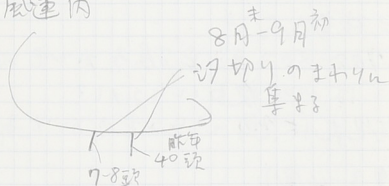 風蓮内
8月末-9月初
汐切りのまわりに
集まる
昨年
40頭
7-8頭